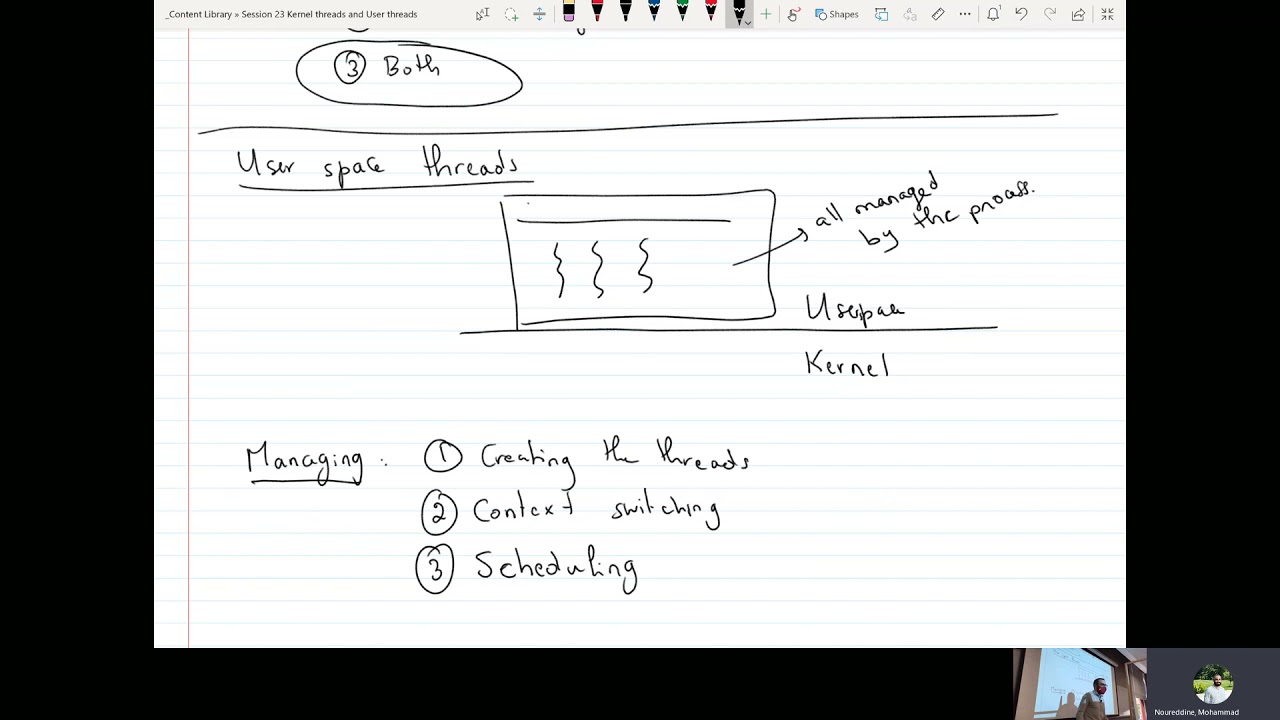 _Content Library » Session 23 Kernel threads and User threads
Shapes
③ Both
User space threads
all managed
by the process.
Userspace
Kernel
Managing : ① Creating the threads
② Context switching
③ Scheduling
Noureddine, Mohammad